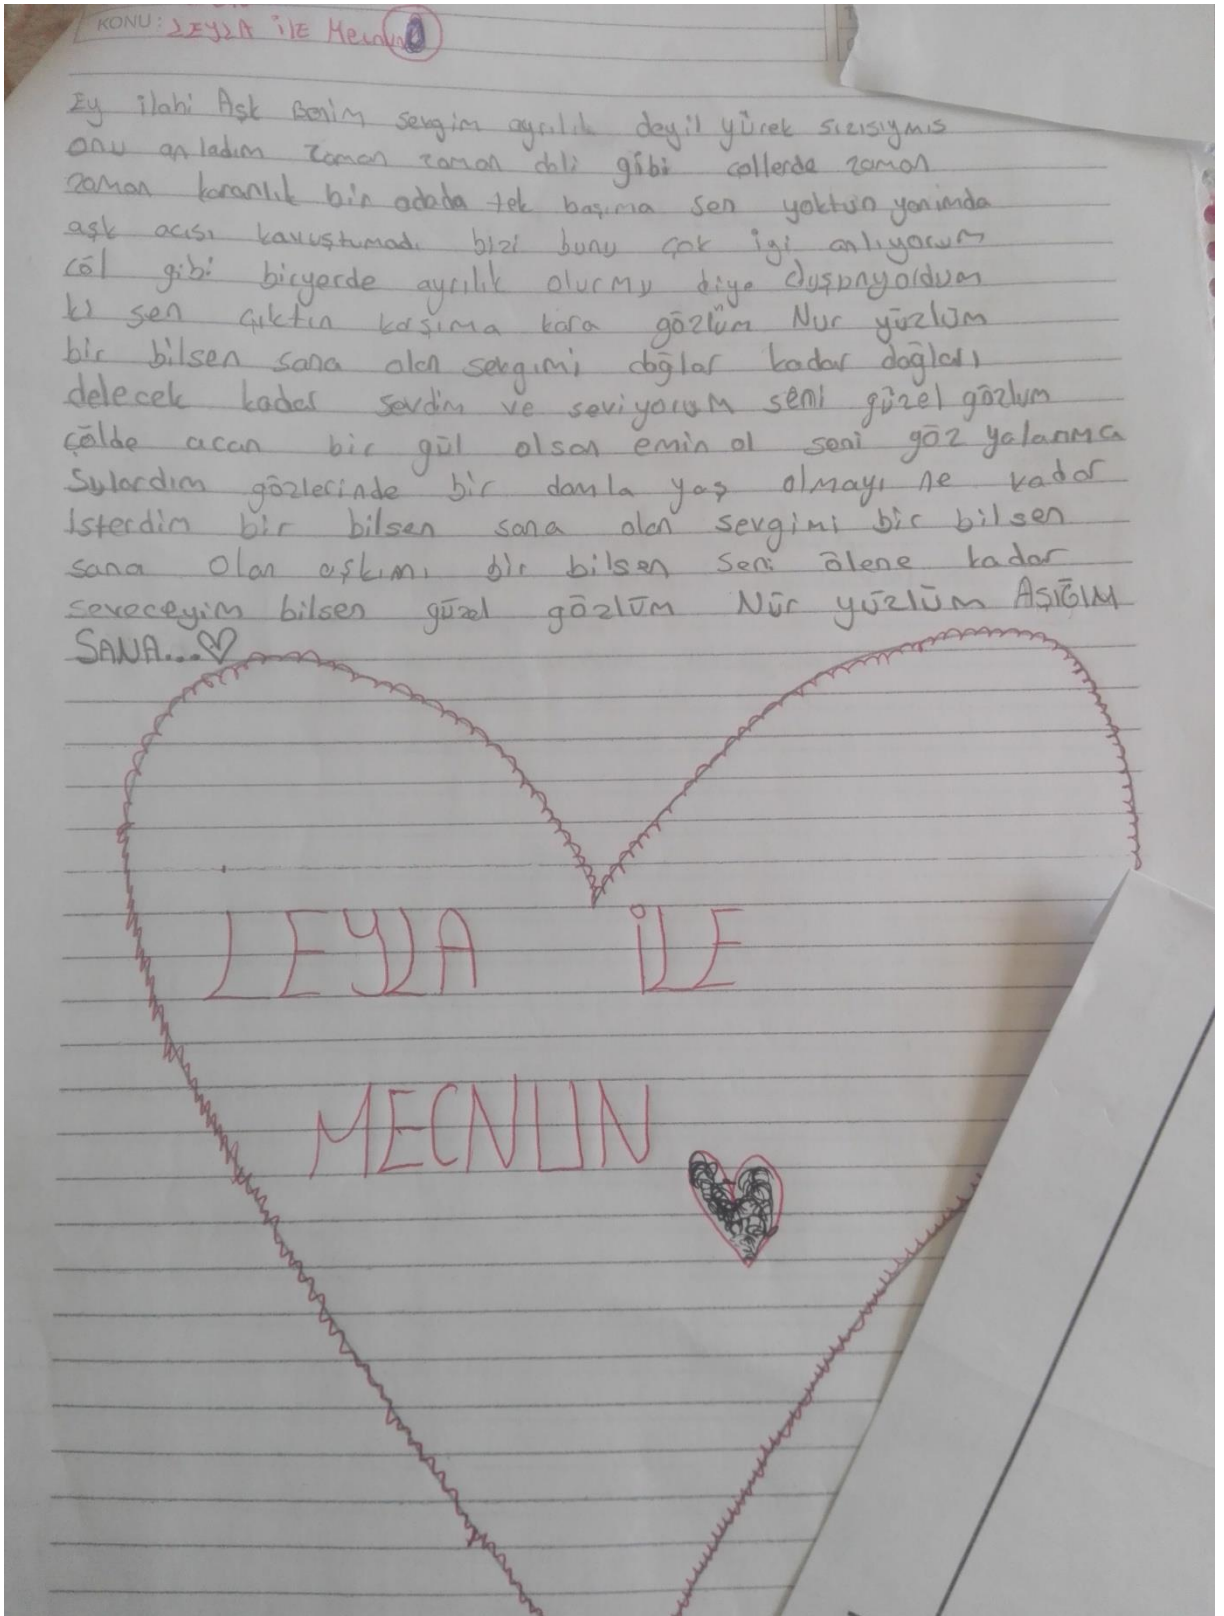 KONU: LEYLA İLE Mecnun
Ey ilahi Aşk Benim sevgim ayrılık deyil yürek sızısıymış
onu anladım zaman zaman deli gibi çollerde zaman
zaman karanlık bir odada tek başıma sen yoktun yanımda
aşk acısı kavuştumadı bizi bunu çok iyi anlıyorum
çöl gibi biryerde ayrılık olurmu diye duşunyordum
ki sen çıktın kaşıma kara gözlüm Nur yüzlüm
bir bilsen sana olan sevgimi dağlar kadar dağları
delecek kadar sevdim ve seviyorum seni güzel gözlum
çölde acan bir gül olsan emin ol seni göz yalarımla
Sulardım gözlerinde bir damla yaş olmayı ne kadar
İsterdim bir bilsen sana olan sevgimi bir bilsen
sana olan aşkımı bir bilsen seni ölene kadar
seveceyim bilsen güzel gözlüm Nür yüzlüm AŞIĞIM
SANA...♡
LEYLA İLE
MECNUN